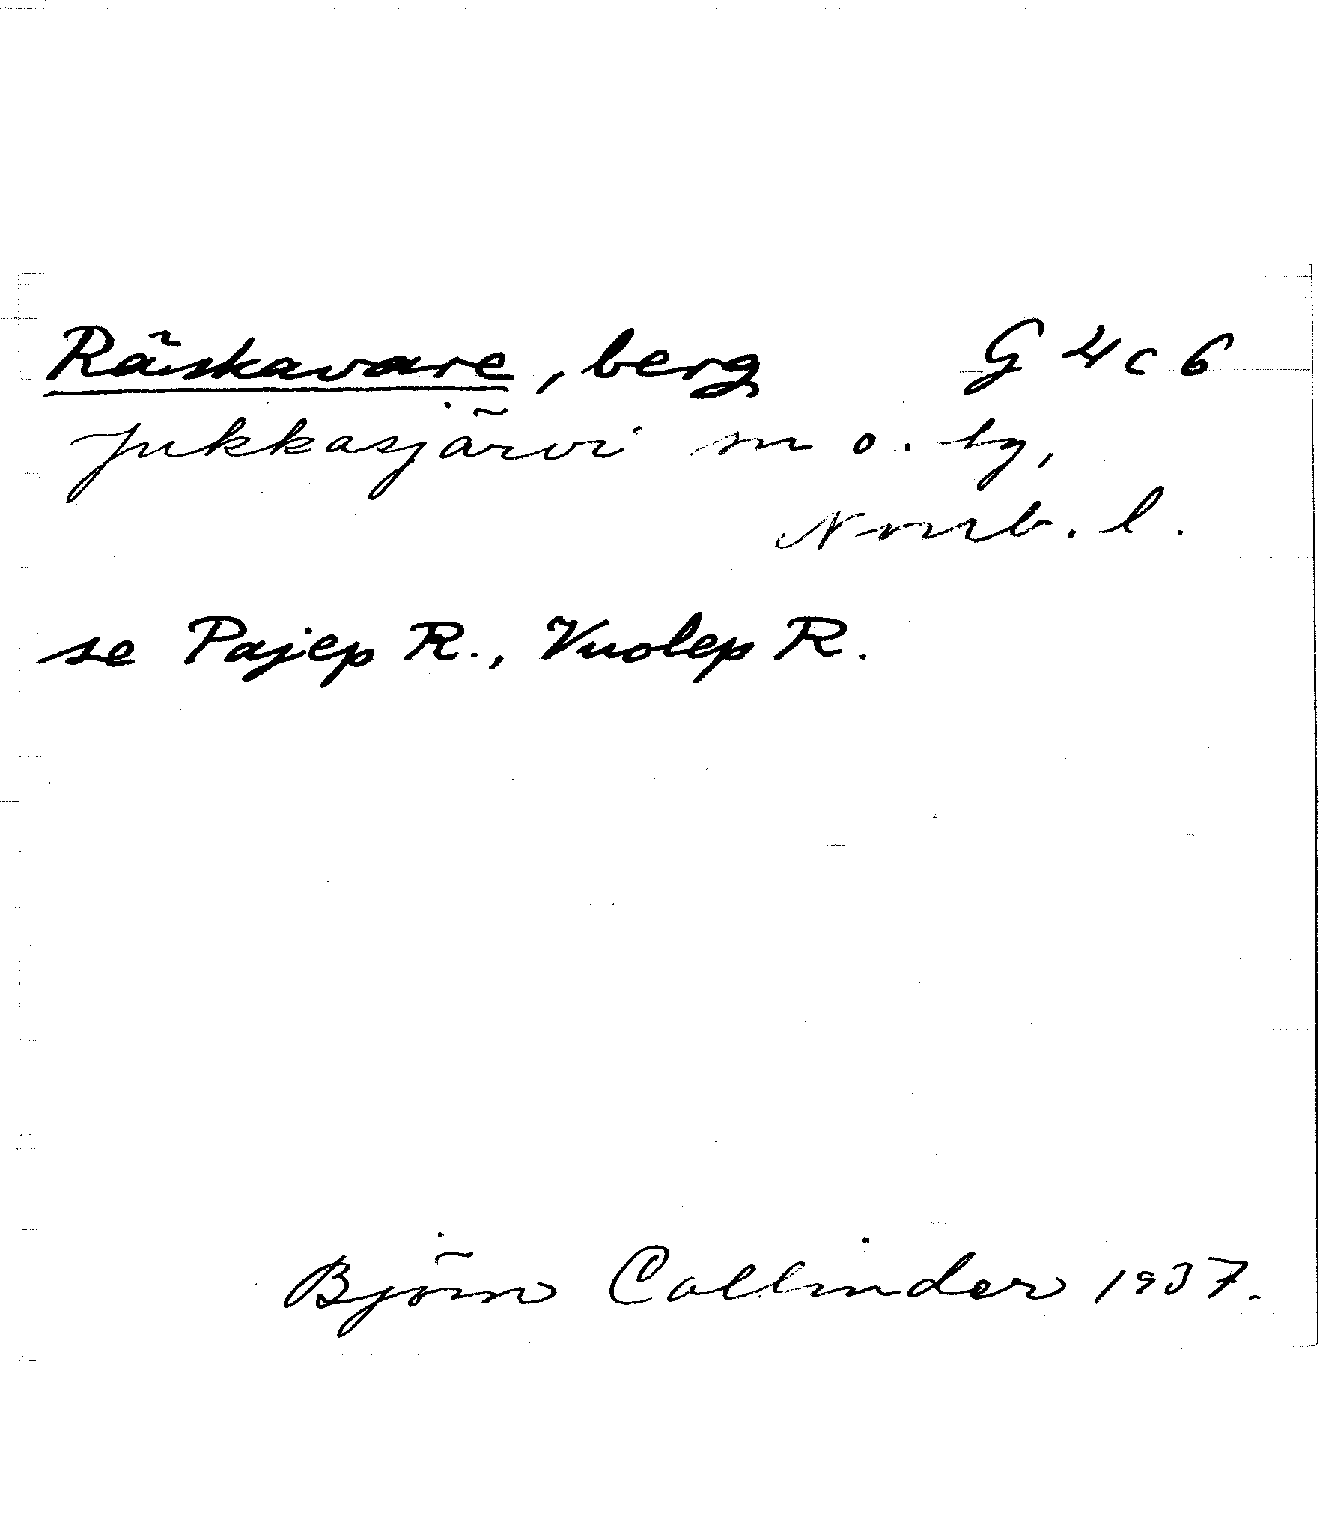 Räskavare, berg G 4 c 6
Jukkasjärvi sn o. by,
Norrb. l.
se Pajep R., Vuolep R.
Björn Collinder 1937.